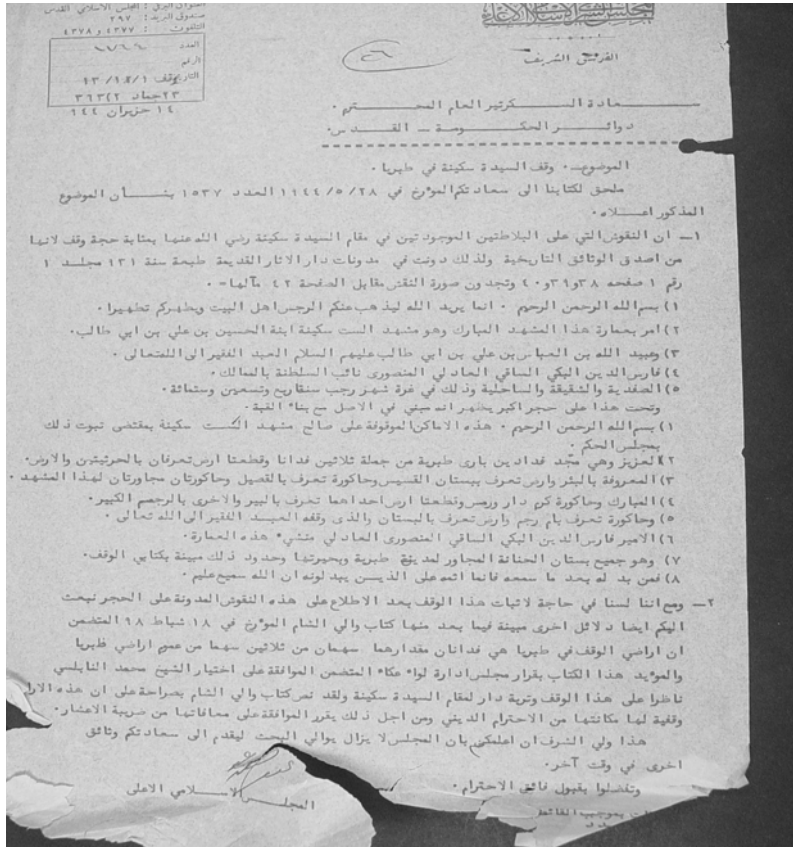 عنوان البرق : المجلس الاسلامي القدس
صندوق البريد : ٢٩٧
التلفون : ٤٣٧٧ و ٤٣٧٨
المجلس الشرعي الاسلامي الاعلى
العدد
الرقم
التاريخ
١٤ حزيران ٩٤٤
القدس الشريف
سعادة السكرتير العام المحترم ٠
دوائر الحكومة ـ القدس٠
الموضوع٠ وقف السيدة سكينة في طبريا ٠
ملحق لكتابنا الى سعادتكم المؤرخ في ١٩٤٤/٥/٢٨ العدد ١٥٣٧ بشأن الموضوع
المذكور اعلاه ٠
١ـ ان النقوش التي على البلاطتين الموجودتين في مقام السيدة سكينة رضي الله عنها بمثابة حجة وقف لانها
من اصدق الوثائق التاريخية ولذلك دونت في مدونات دار الاثار القديمة طبعة سنة ١٣١ مجلد ١
رقم ١ صفحه ٣٨ و٣٩ و٤٠ وتجدون صورة النقش مقابل الصفحة ٤٢ مآلها=٠
١) بسم الله الرحمن الرحيم ٠ انما يريد الله ليذهب عنكم الرجس اهل البيت ويطهركم تطهيرا ٠
٢) امر بعمارة هذا المشهد المبارك وهو مشهد الست سكينة ابنة الحسين بن علي بن ابي طالب٠
٣) وعبيد الله بن العباس بن علي بن ابي طالب عليهم السلام العبد الفقير الى الله تعالى ٠
٤) فارس الدين البكي الساقي العادلي المنصورى نائب السلطنة بالممالك ٠
٥) الصفدية والشقيفة والساحلية وذلك في غرة شهر رجب سنة اربع وتسعين وستمائة ٠
وتحت هذا على حجر اكبر يظهر انه مبني في الاصل مع بناء القبة ٠
١) بسم الله الرحمن الرحيم ٠ هذه الاماكن الموقوفة على صالح مشهد الست سكينة بمقتضى ثبوت ذلك
بمجلس الحكم ٠
٢) العزيز وهي فدادين بارى طبرية من جملة ثلاثين فدانا وقطعتا ارض تعرفان بالحرثيتين والارض٠
٣) المعروفة بالبئر وارض تعرف ببستان القسيس وحاكورة تعرف بالقصيل وحاكورتان مجاورتان لهذا المشهد ٠
٤) المبارك وحاكورة كرم دار وقطعتا ارض احداهما تعرف بالبير والاخرى بالرجم الكبير ٠
٥) وحاكورة تعرف بام رجم وارض تعرف بالبستان والذى وقفه العبد الفقير الى الله تعالى ٠
٦) الامير فارس الدين البكي الساقي المنصورى العادلي منشيء هذه العمارة٠
٧) وهو جميع بستان الحنانة المجاور لمدينة طبرية وبحيرتها وحدود ذلك مبينة بكتابي الوقف٠
٨) فمن بدله بعد ما سمعه فانما اثمه على الذين يبدلونه ان الله سميع عليم ٠
٢ـ ومع اننا لسنا في حاجة لاثبات هذا الوقف بعد الاطلاع على هذه النقوش المدونة على الحجر نبعث
اليكم ايضا دلائل اخرى مبينة فيما بعد منها كتاب والي الشام المؤرخ في ١٨ شباط ٩٨ المتضمن
ان اراضي الوقف في طبريا هي فدانان مقدارهما سهمان من ثلاثين سهما من عموم اراضي طبريا
والمؤيد هذا الكتاب بقرار مجلس ادارة لواء عكاء المتضمن الموافقة على اختيار الشيخ محمد النابلسي
ناظرا على هذا الوقف وتربة دار لمقام السيدة سكينة ولقد نص كتاب والي الشام بصراحة على ان هذه
وقفية لها مكانتها من الاحترام الديني ومن اجل ذلك يقرر الموافقة على معافاتها من ضريبة الاعشار ٠
هذا ولي الشرف ان اعلمكم بان المجلس لا يزال يوالي البحث ليقدم الى سعادتكم وثائق
اخرى في وقت آخر ٠
وتفضلوا بقبول فائق الاحترام ٠
المجلس الاسلامي الاعلى